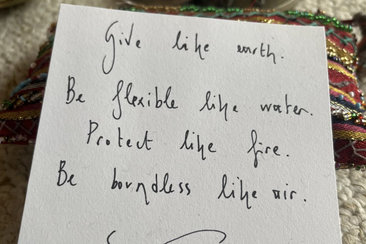 Give like earth.
Be flexible like water.
Protect like fire.
Be boundless like air.